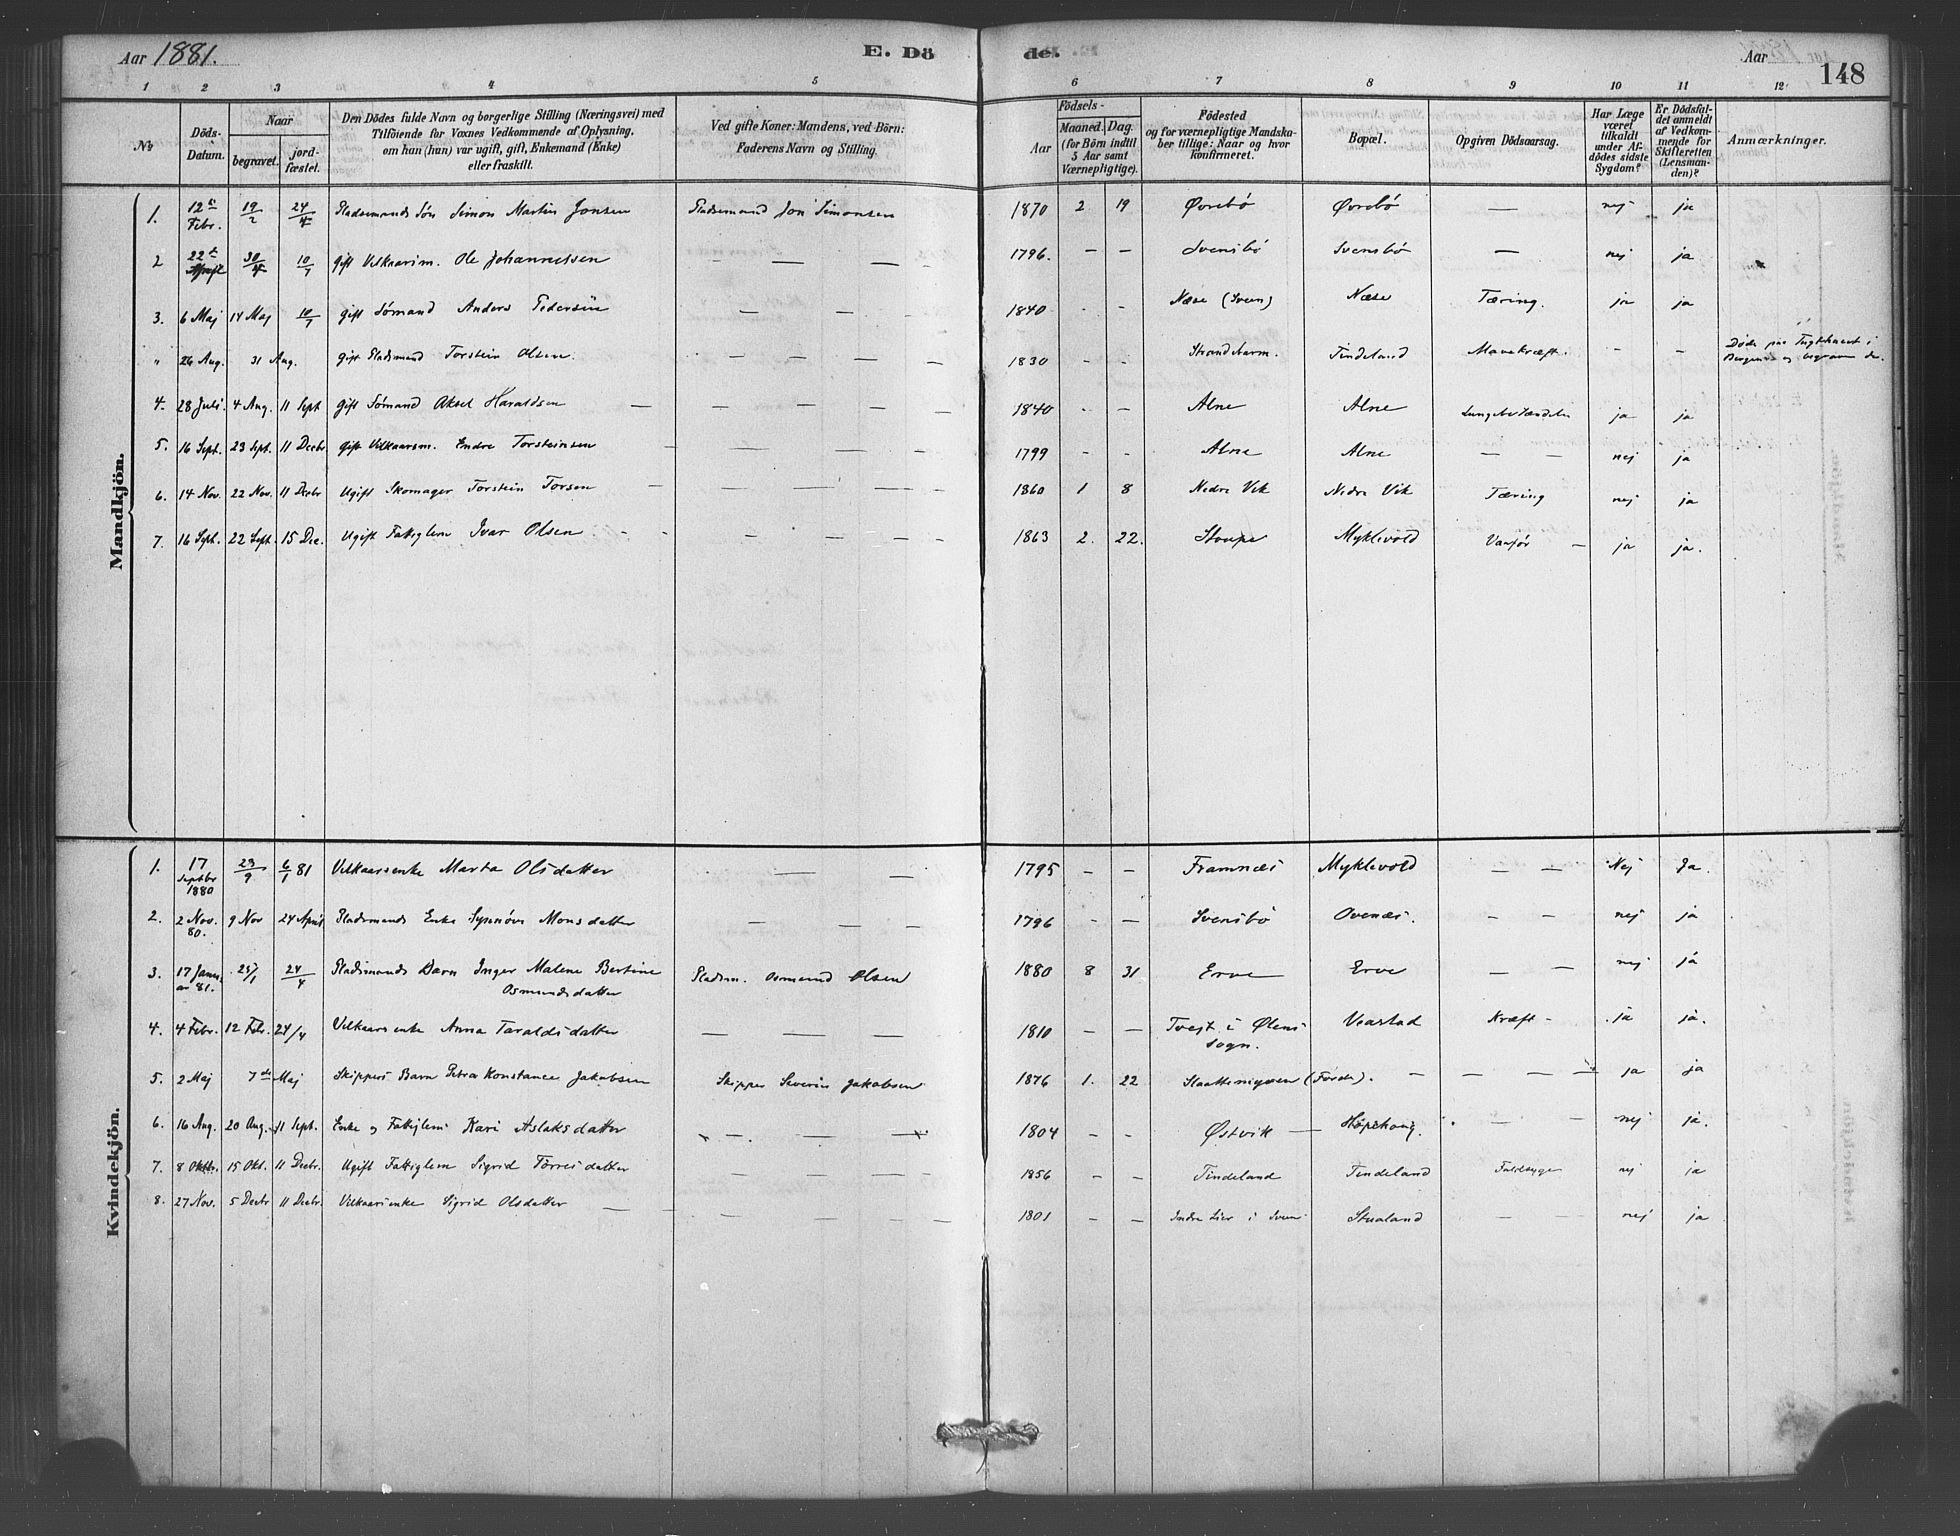 Aar 1881. E. Dö de. Aar 148
1 2 3 4 5 6 7 8 9 10 11 12
No
Döds-Datum.
Naar
begravet.
jord-fæstet.
Den Dödes fulde Navn og borgerlige Stilling (Næringsvei) med
Tilföiende for Voxnes Vedkommende af Oplysning,
om han (hun) var ugift, gift, Enkemand (Enke)
eller fraskilt.
Ved gifte Koner: Mandens, ved Börn:
Faderens Navn og Stilling.
Födsels-
Aar
Maaned. Dag.
(for Börn indtil
5 Aar samt
Værnepligtige).
Födested
og for værnepligtige Mandska-
ber tillige: Naar og hvor
konfirmeret.
Bopæl.
Opgiven Dödsaarsag.
Har Læge
været
tilkaldt
under Af-
dödes sidste
Sygdom?
Er Dödsfal-
det anmeldt
af Vedkom-
mende for
Skifteretten
(Lensman-
den)?
Anmærkninger.
Mandkjön.
1. 12te Febr. 19/2 24/4 Pladsmands Søn Simon Martin Jonsen Pladsmand Jon Simonsen 1870 2. 19 Øvrebø Øvrebø — nej ja
2 22de April 30/4 10/7 gift Vilkaarsm. Ole Johannessen — — — — 1796. — — Svensbø Svensbø — nej ja
3. 6 Maj 14 Maj 10/7 gift Sømand Anders Pedersen — — — — 1840 - - Næse (Sveen) Næse Tæring. ja ja
" 26 Aug. 31 Aug. gift Pladsmand Torstein Olsen. — — — — 1830 - - Strandebarm. Tindeland Mavekræft. — — Døde paa Tugthuset i
Bergen og begraven der.
4. 28 Juli. 4 Aug. 11 Sept gift Sømand Aksel Haraldsen — — — — — 1840 - — Alne Alne Lungebetændelse ja ja
5. 16 Sept. 23 Sept. 11 Decbr gift Vilkaarsm. Endre Torsteinsen — — — — — 1799 - - Alne Alne — — nej ja
6. 14 Nov. 22 Nov. 11 Decbr Ugift Skomager Torstein Torsen — — — — — 1860 1 8 Nedre Vik Nedre Vik Tæring nej ja
7. 16 Sept. 22 Sept. 15 Dec. Ugift Fattiglem Ivar Olsen — - - — — — — 1863 2. 22. Stoupe Myklevold Vanfør — ja ja.
Kvindekjön.
1. 17 Septbr 1880 23/9 6/1 81 Vilkaarsenke Marta Olsdatter — — 1795 — — Framnæs Myklevold — — Nej Ja.
2. 2 Nov. 80. 9 Nov 24 April Pladsmands Enke Synnøve Monsdatter — — — 1796 — — Svensbø Ovenæs. — — nej ja
3. 17 Janu ar 81. 25/1 24/4 Pladsmands Barn Inger Malene Bertine
Osmundsdatter Pladsm. Osmund Olsen 1880 8 31 Erve Erve — — nej ja
4. 4 Febr. 12 Febr. 24/4 Vilkaarsenke Anna Taraldsdatter — — — 1810 — — Tvejt i Ølens
sogn. Veastad Kræft - ja ja.
5. 2 Maj 7de Maj Skippers Barn Petra Konstance Jakobsen Skipper Severin Jakobsen 1876 1. 22 (Førde). — — — — ja ja
6. 16 Aug. 20 Aug. 11 Sept. Enke og Fattiglem Kari Aslaksdatter — — — 1804 - - Østvik — nej ja.
7. 8 Oktb. 15 Okt. 11 Decbr. Ugift Fattiglem Sigrid Torresdatter — — — 1856 - - Tindeland Tindeland Faldsyge nej ja
8. 27 Nov. 5 Decbr 11 Decbr. Vilkaarsenke Sigrid Olsdatter — — — — — — 1801 - - Indre Lier i Sveen Stualand — — nej ja